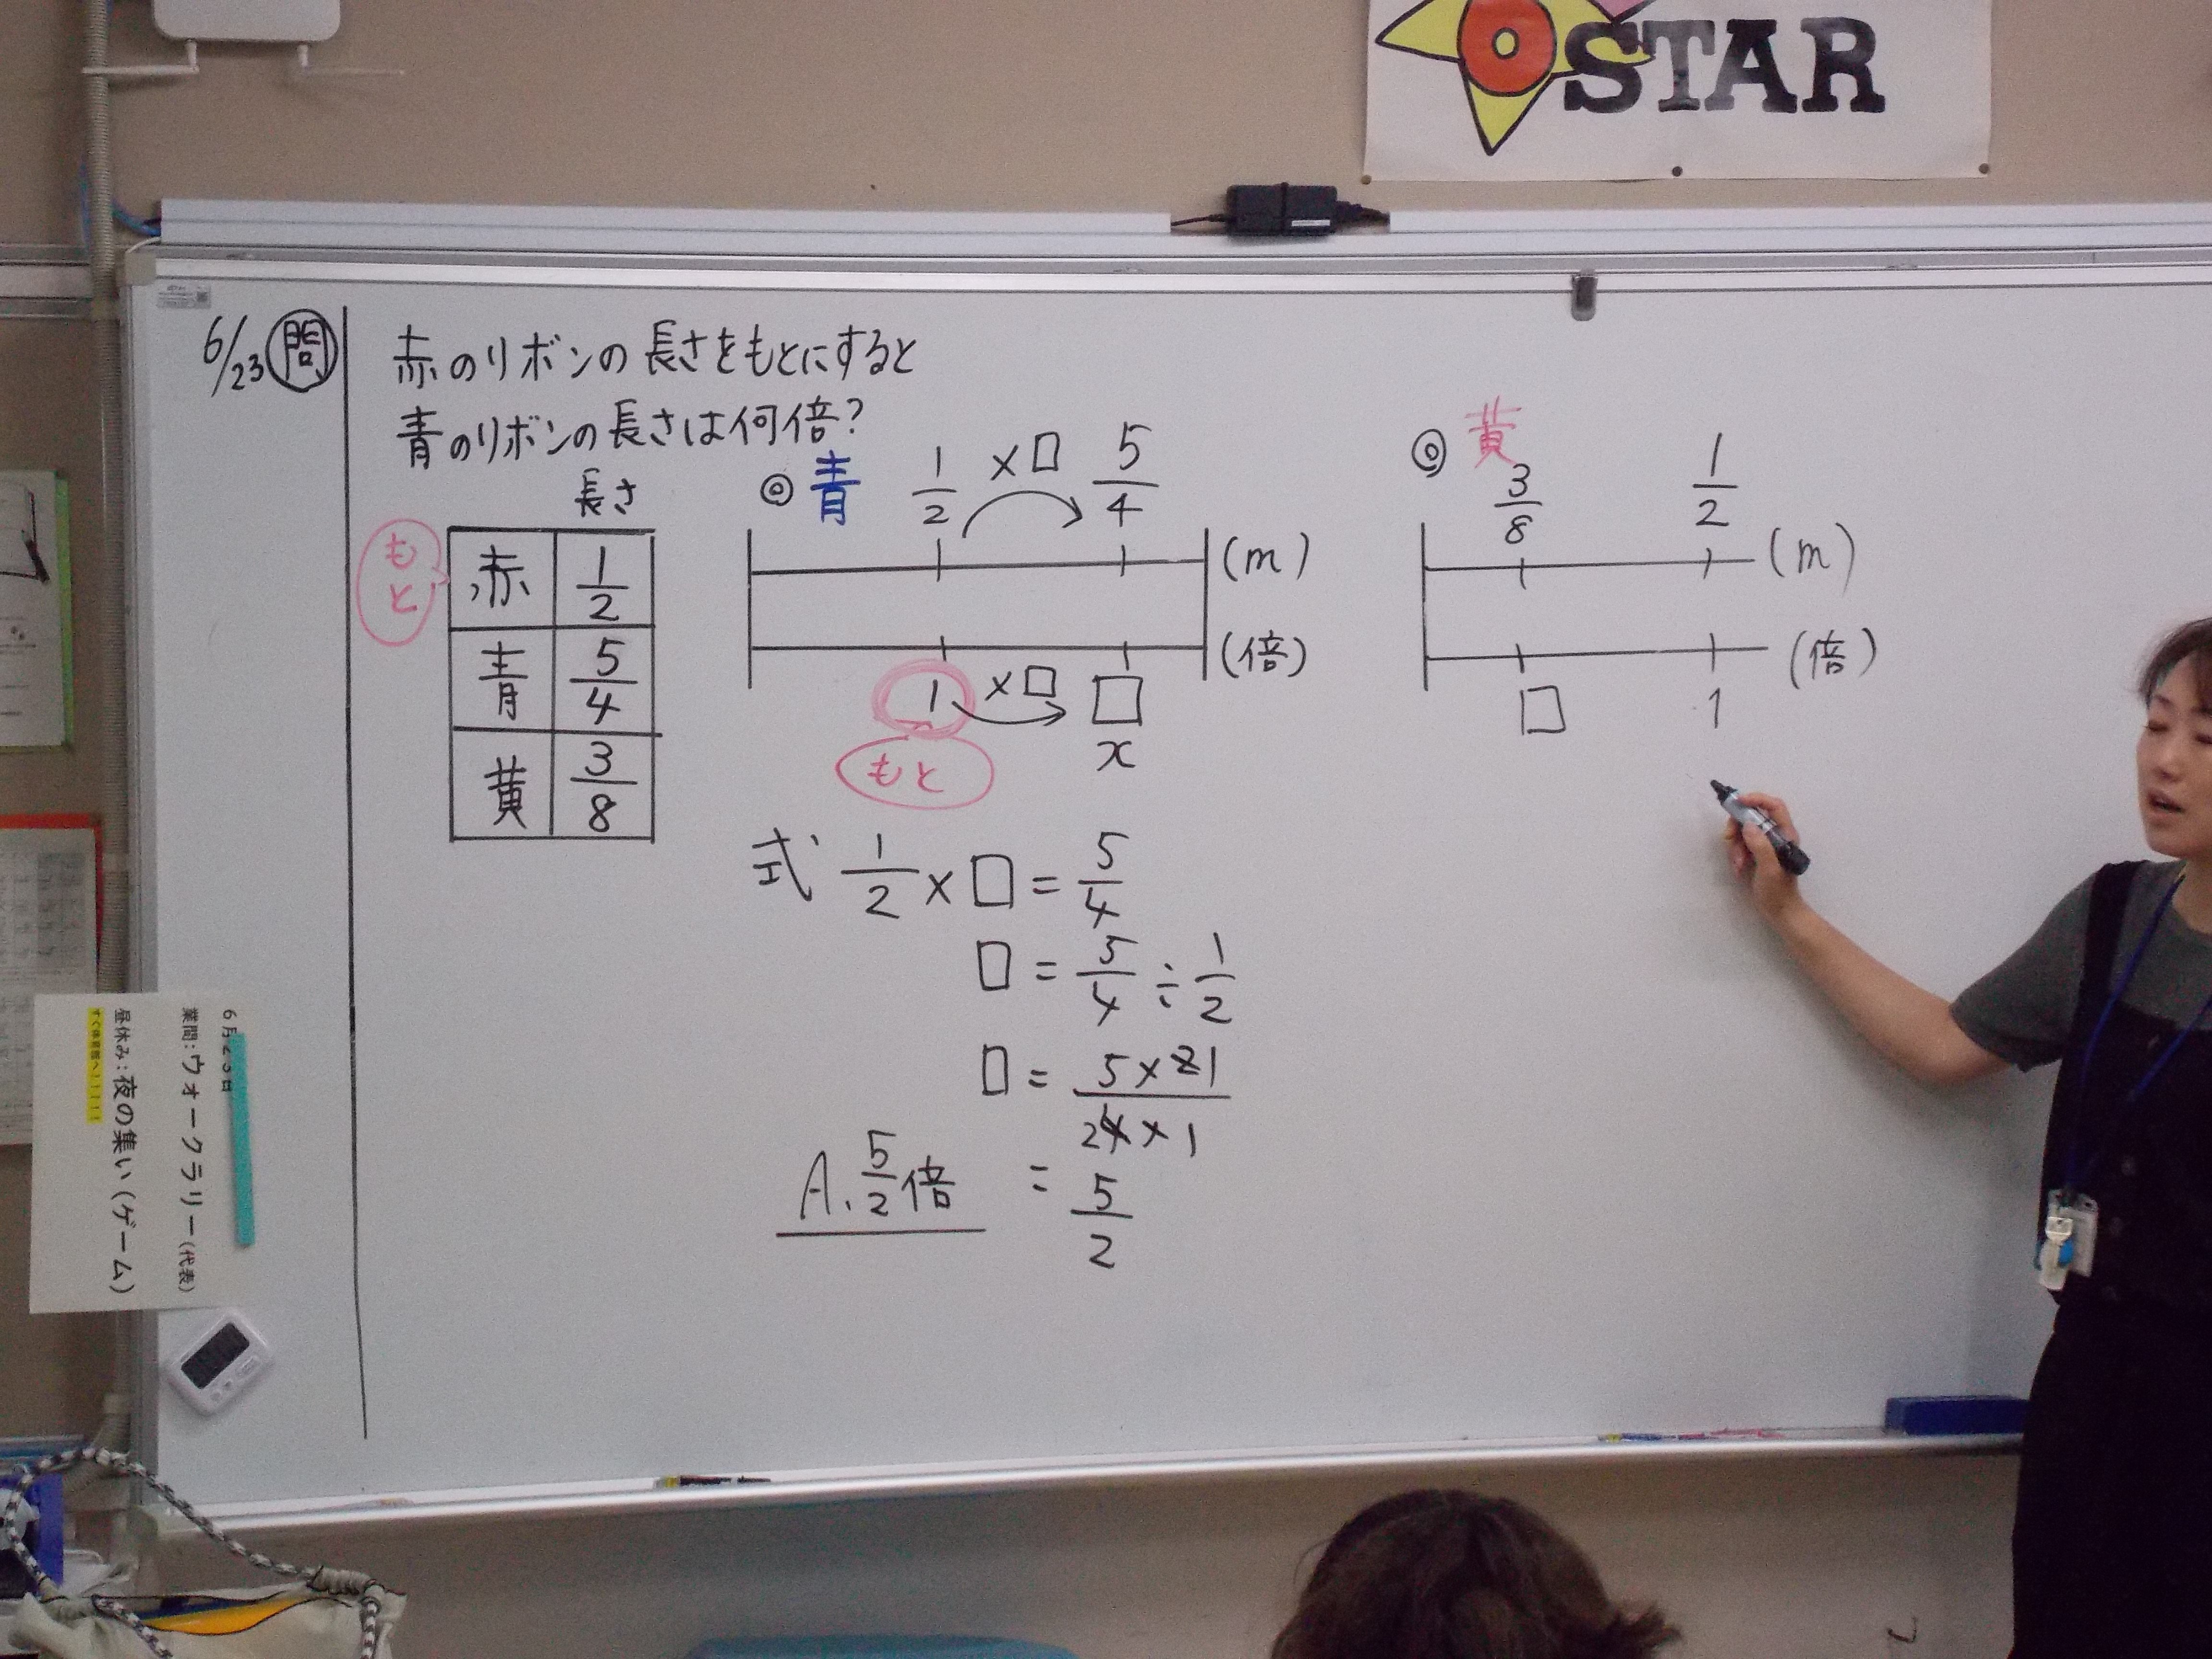 STAR
6/23 問
赤のリボンの長さをもとにすると
青のリボンの長さは何倍?
長さ
もと
赤 1/2
青 5/4
黄 3/8
◎ 青 1/2 ×□ 5/4
(m)
(倍)
1 ×□ □
もと x
式 1/2 × □ = 5/4
□ = 5/4 ÷ 1/2
□ = 5×21/24×1
= 5/2
A. 5/2倍
◎ 黄
3/8 1/2
(m)
(倍)
□ 1
6月23日
業間:ウォークラリー(代表)
昼休み:夜の集い(ゲーム)